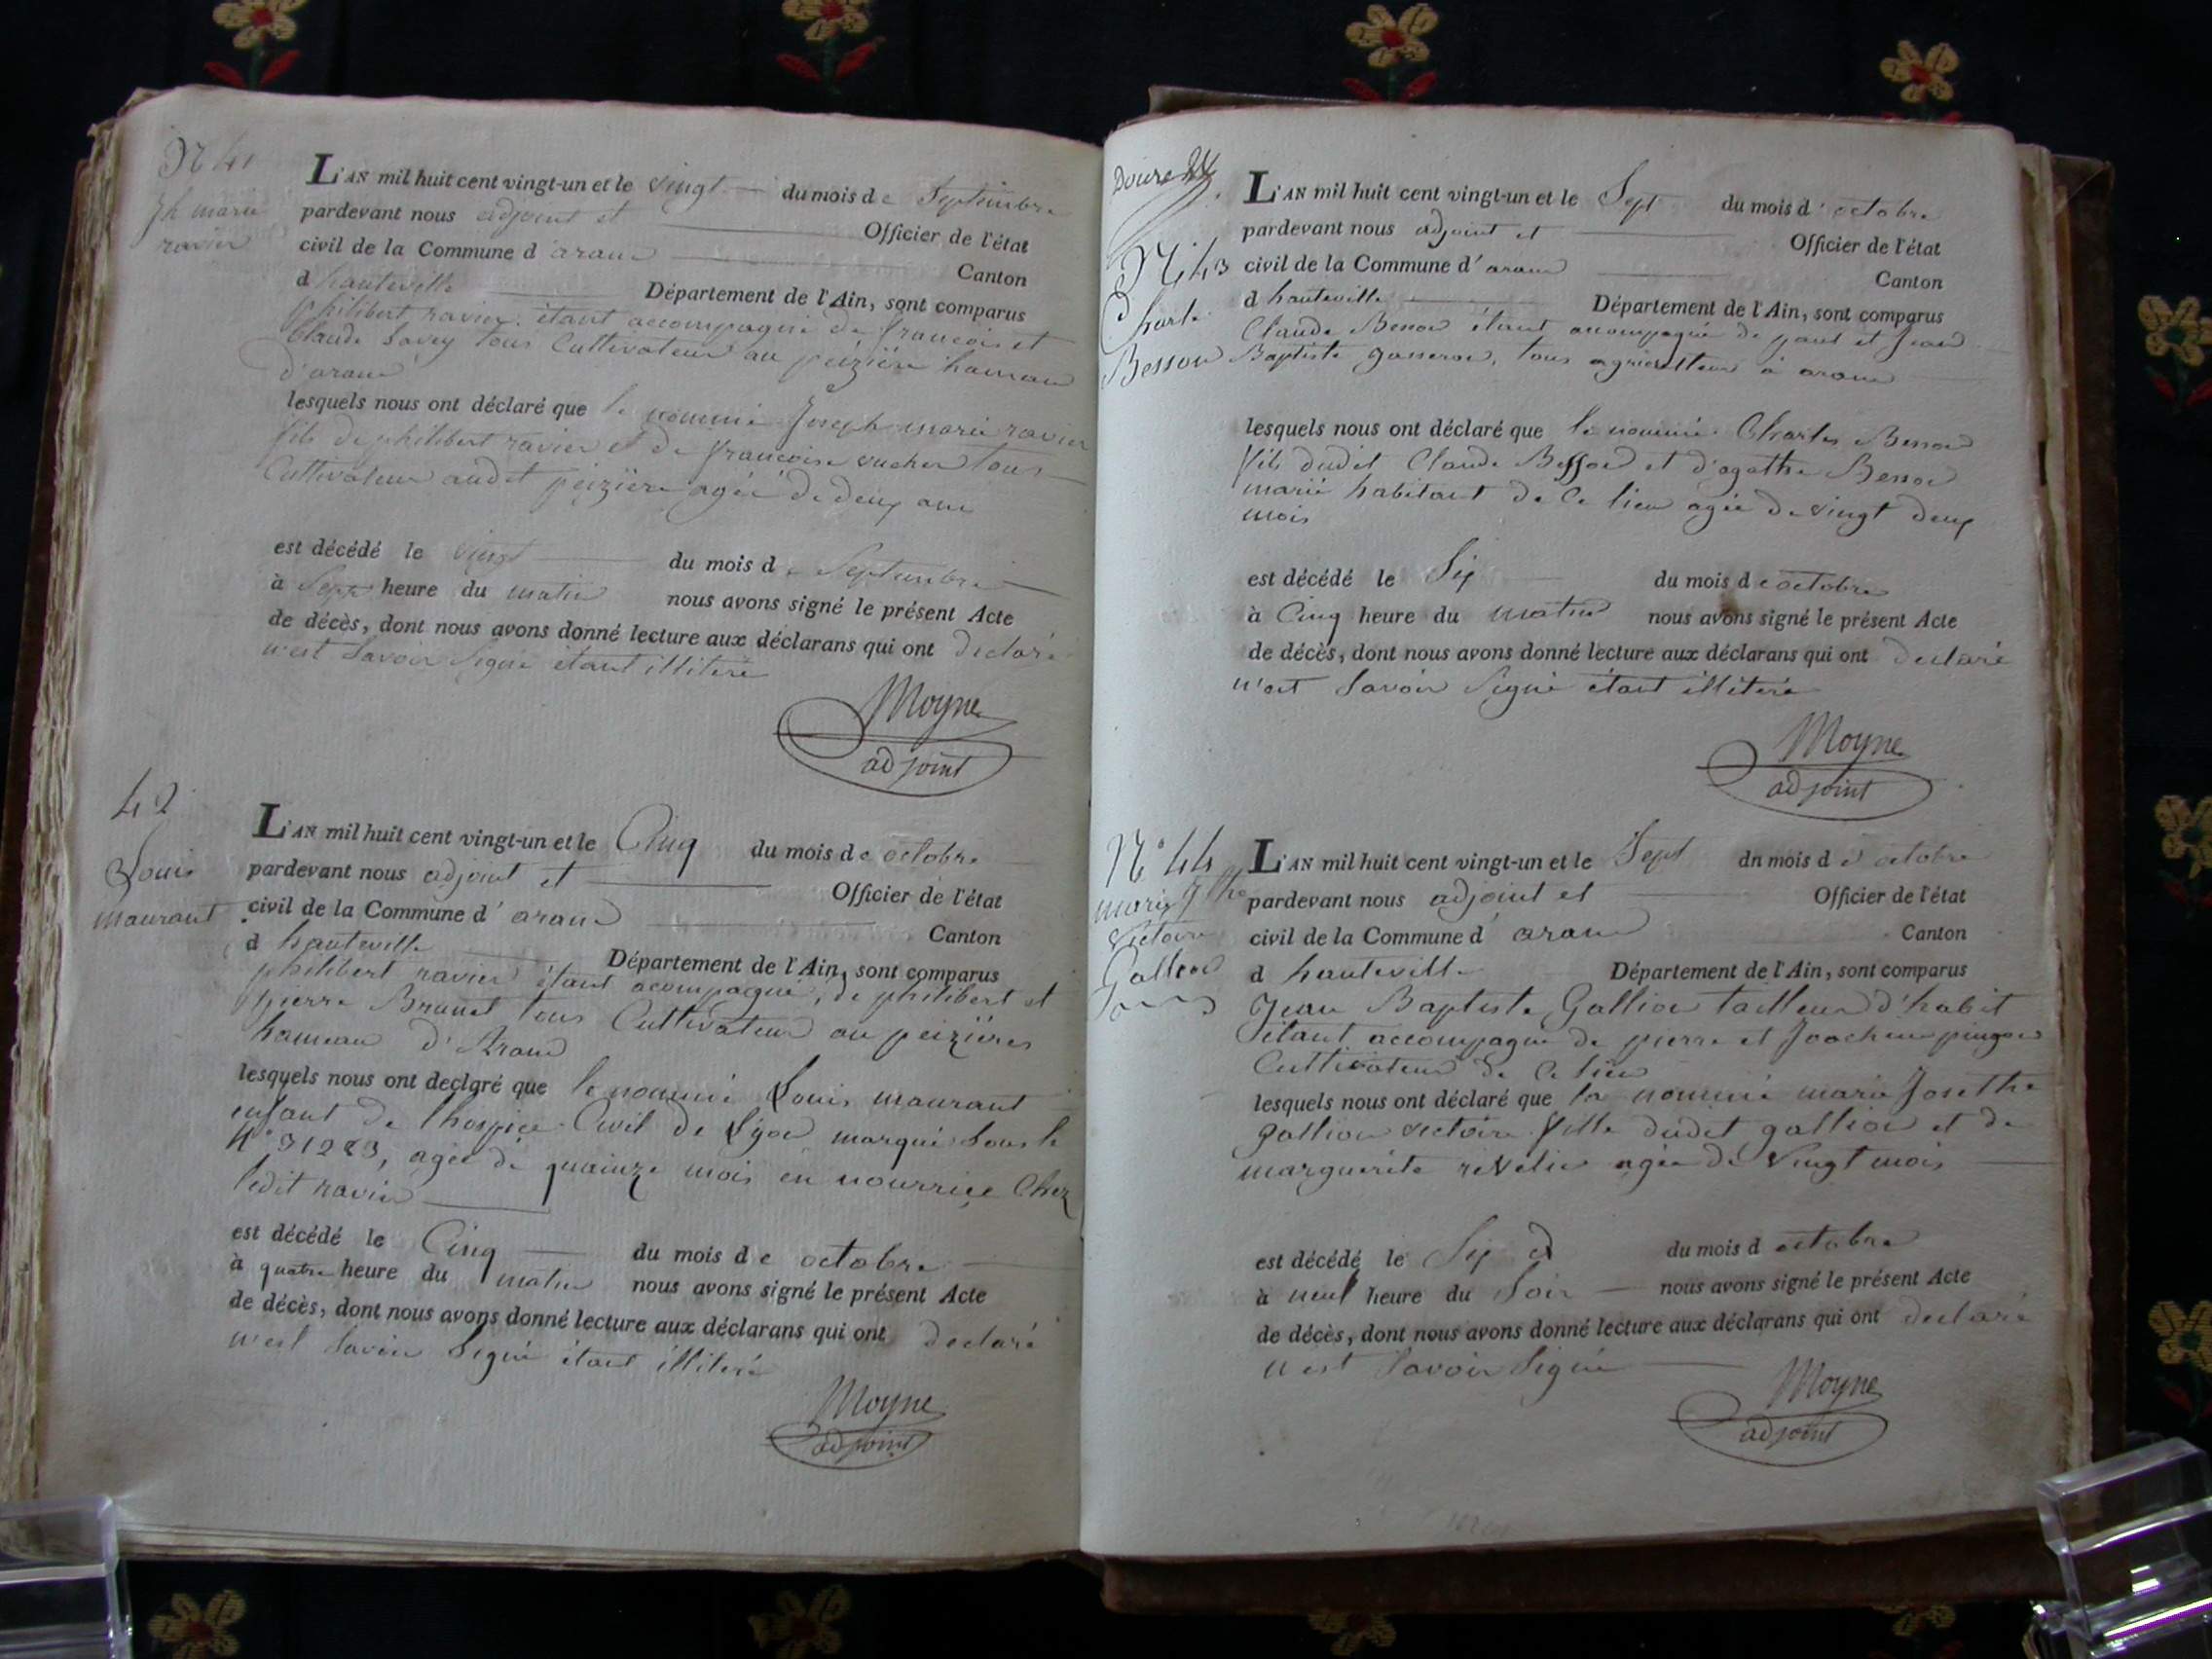 N 41
Jh marie
ravier
L'AN mil huit cent vingt-un et le vingt du mois de Septembre
pardevant nous adjoint et Officier de l'état
civil de la Commune d aranc Canton
d hauteville Département de l'Ain, sont comparus
philibert ravier étant accompagné de francois et
Claude Savey tous Cultivateur au peizière hameau
d'aranc
lesquels nous ont déclaré que le nommé Joseph marie ravier
fils de philibert ravier et de francoise tous
Cultivateur audit peizière agée de deux ans
est décédé le vingt du mois de Septembre
à Sept heure du matin nous avons signé le présent Acte
de décès, dont nous avons donné lecture aux déclarans qui ont declaré
n'est Savoir Signé étant illiteré
Moyne
adjoint
42
Louis
maurant
L'AN mil huit cent vingt-un et le Cinq du mois de octobre
pardevant nous adjoint et Officier de l'état
civil de la Commune d' aranc Canton
d hauteville Département de l'Ain, sont comparus
philibert ravier étant acompagné, de philibert et
pierre Brunet tous Cultivateur au peizières
hameau d'Aranc
lesquels nous ont declaré que le nommé Louis maurant
enfant de lhospice Civil de Lyon marqué Sous le
N° 31283, agée de quainze mois en nourrice Chez
ledit ravier
est décédé le Cinq du mois de octobre
à quatre heure du matin nous avons signé le présent Acte
de décès, dont nous avons donné lecture aux déclarans qui ont declaré
n'est Savoir Signé étant illiteré
Moyne
adjoint
N 43
Charle
Besson
L'AN mil huit cent vingt-un et le Sept du mois d' octobre
pardevant nous adjoint et Officier de l'état
civil de la Commune d' aranc Canton
d hauteville Département de l'Ain, sont comparus
Claude Besson étant accompagnée de paul et Jean
Baptiste tous agriculteur à aranc
lesquels nous ont déclaré que le nommé Charles Besson
fils dudit Claude Besson et d'agathe Besson
marié habitant de Ce lieu agée de vingt deux
mois
est décédé le Six du mois de octobre
à Cinq heure du matin nous avons signé le présent Acte
de décès, dont nous avons donné lecture aux déclarans qui ont declaré
n'est Savoir Signé étant illiteré
Moyne
adjoint
N° 44
marie Jthe
victoire
Gallion
L'AN mil huit cent vingt-un et le Sept dn mois d octobre
pardevant nous adjoint et Officier de l'état
civil de la Commune d aranc Canton
d hauteville Département de l'Ain, sont comparus
Jean Baptiste Gallion tailleur d'habit
étant accompagné de pierre et Joachim
Cultivateur de Ce lieu
lesquels nous ont déclaré que la nommé marie Josethe
gallion victoire fille dudit gallion et de
marguerite agée de vingt mois
est décédé le Six du mois d octobre
à neuf heure du Soir nous avons signé le présent Acte
de décès, dont nous avons donné lecture aux déclarans qui ont declaré
n'est Savoir Signé
Moyne
adjoint